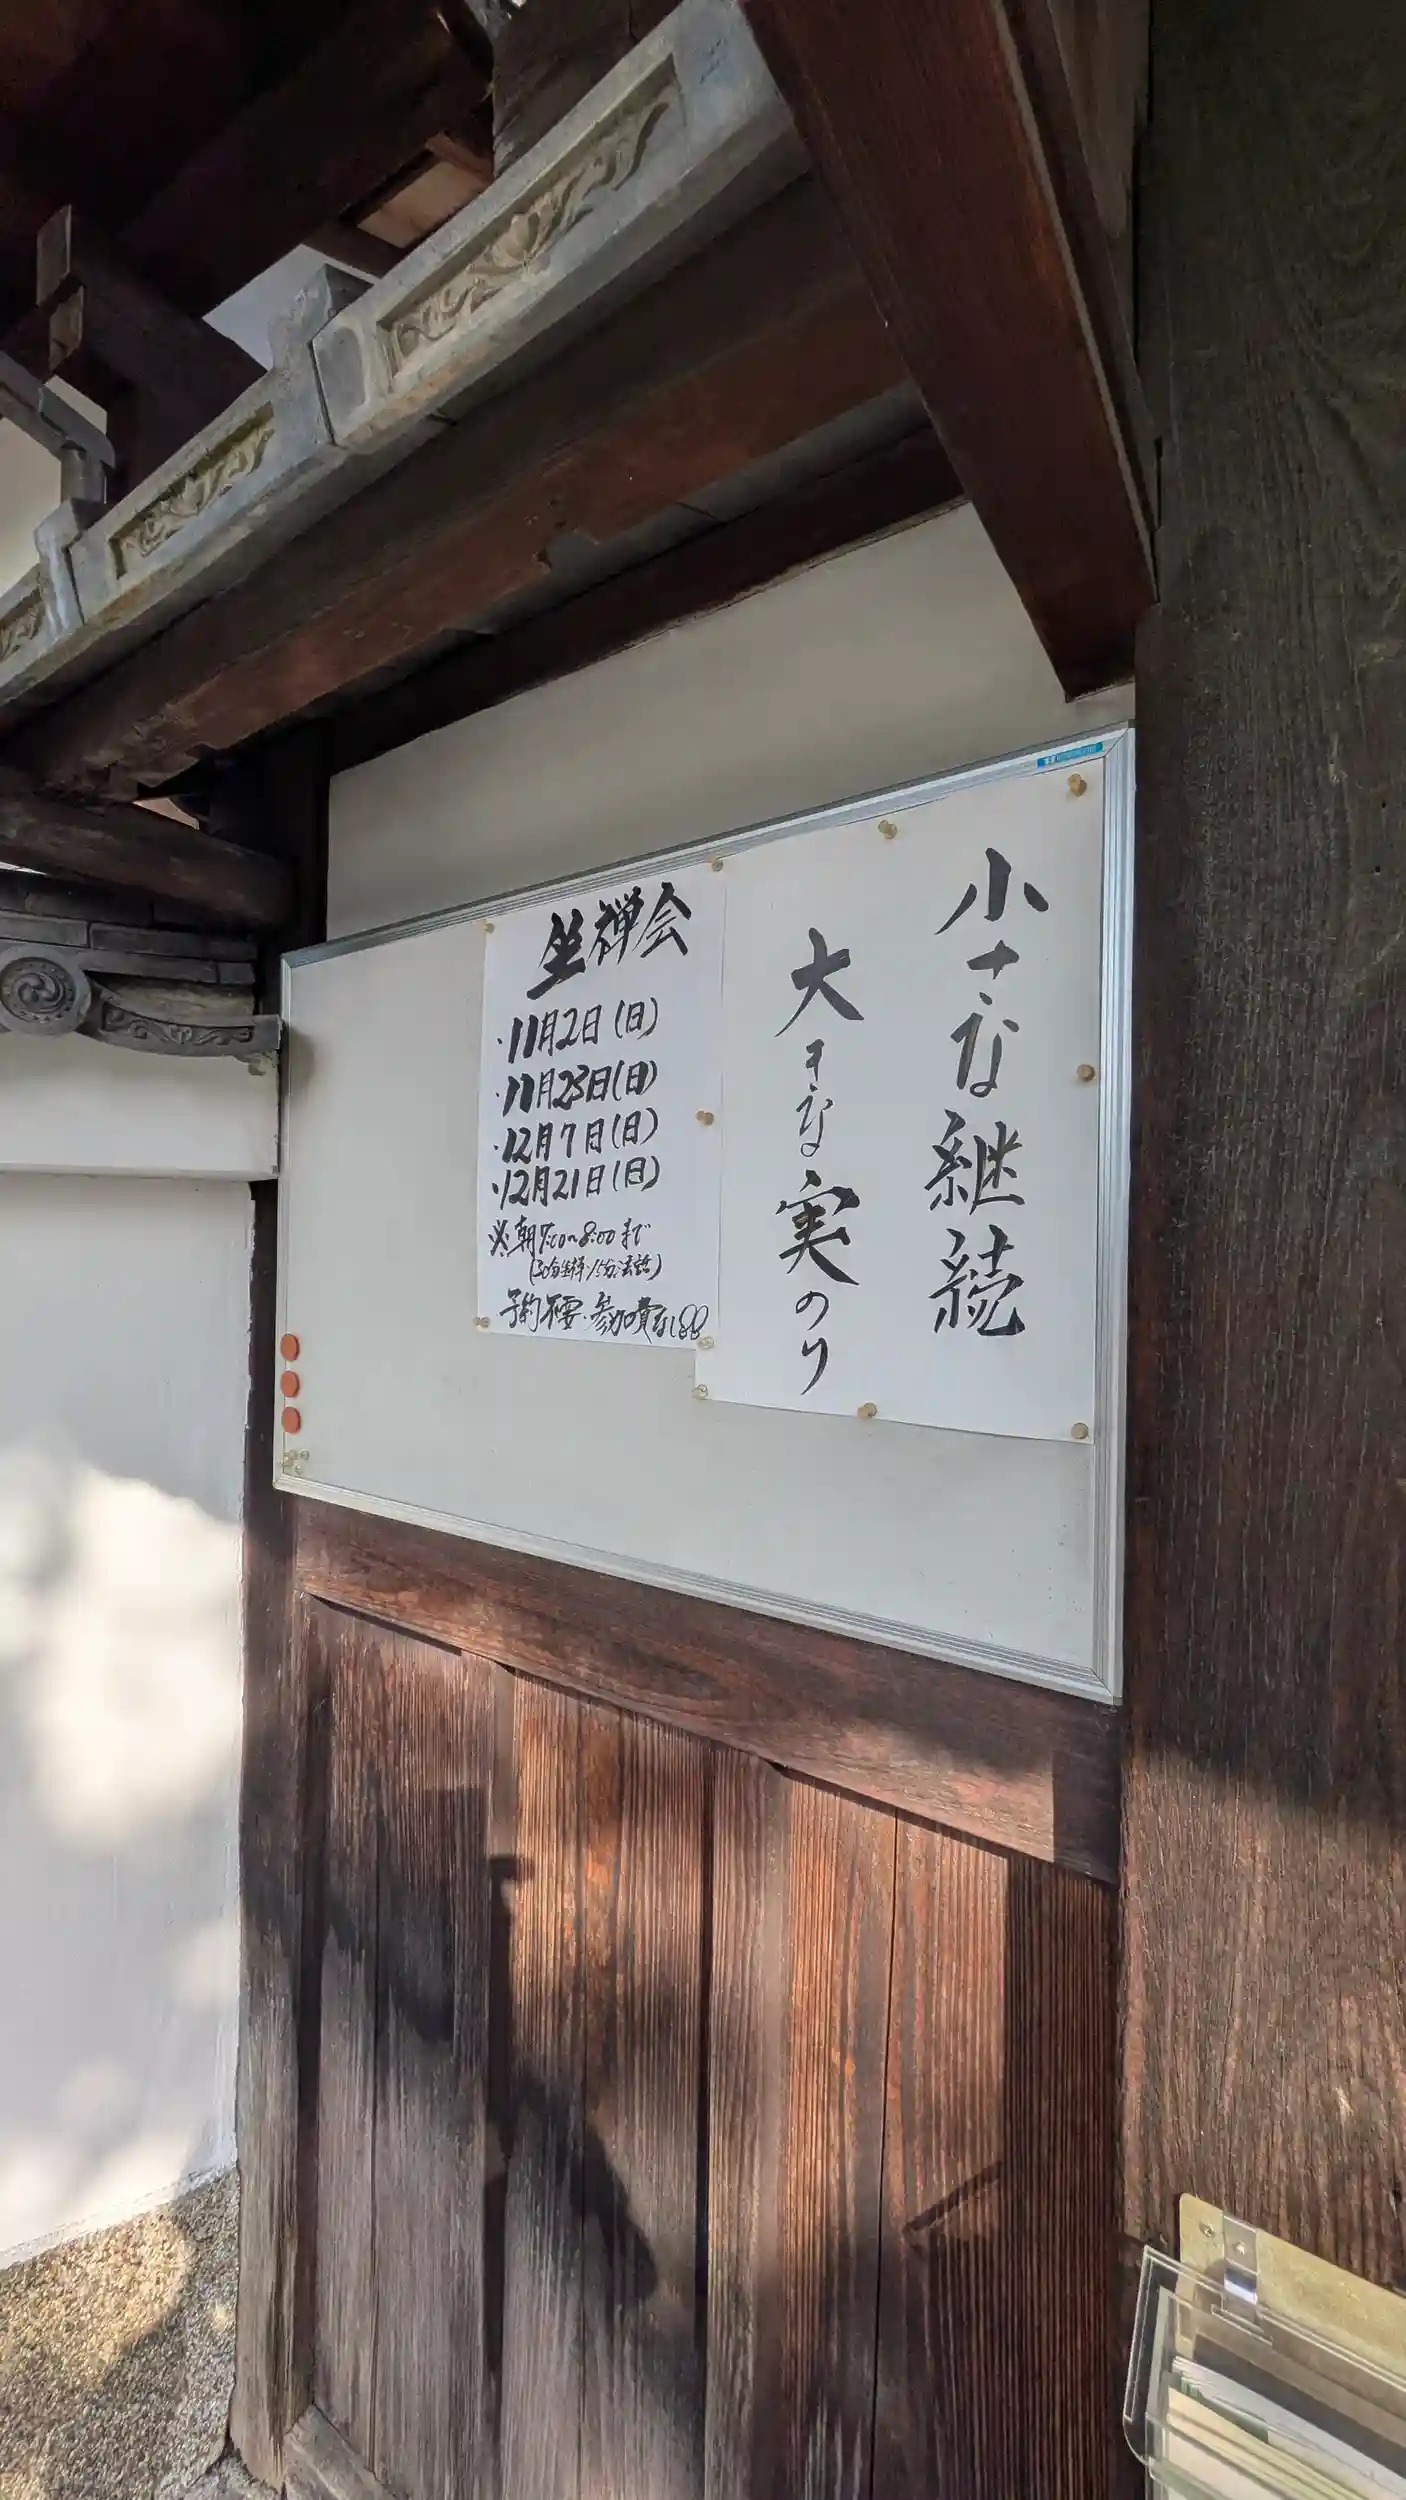 小さな継続
大きな実のり
坐禅会
・11月2日(日)
・11月23日(日)
・12月7日(日)
・12月21日(日)
※朝7:00〜8:00まで
(30分坐禅・15分法話)
予約不要・参加費なし